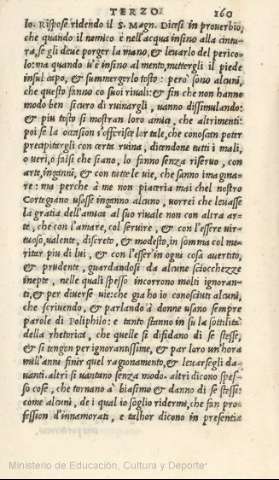 TERZO. 160
lo. Rispose ridendo il S. Magn. Dicesi in proverbio,
che quando il nemico è nell'acqua insino alla cintu-
ra, se gli deue porger la mano, & leuarlo del perico-
lo: ma quando u'è insino al mento, mettergli il piede
insul capo, & summergerlo tosto: però sono alcuni,
che questo fanno co suoi riuali: & fin che non hanno
modo ben sicuro di ruinargli, uanno dissimulando:
& piu tosto si mostran loro amici, che altrimenti:
poi se la occasion s'offerisce lor tale, che conoscan poter
precipitergli con certa ruina, dicendone tutti i mali,
o ueri, o falsi che siano, lo fanno senza riseruo, con
arte, inganni, & con tutte le uie, che sanno imagina-
re: ma perche à me non piaceria mai chel nostro
Cortegiano usasse inganno alcuno, uorrei che leuasse
la gratia dell'amica al suo riuale non con altra ar-
te, che con l'amare, col seruire, & con l'essere uir-
tuoso, ualente, discreto, & modesto, in somma col me-
ritar piu di lui, & con l'esser in ogni cosa auertito,
& prudente, guardandosi da alcune sciocchezze
inepte, nelle quali spesso incorrono molti ignoran-
ti, & per diuerse uie: che gia ho io conosciuti alcuni,
che scriuendo, & parlando à donne usano sempre
parole di Poliphilo: e tanto stanno in su la sottilità
della rhetorica, che quelle si diffidano di se stesse,
& si tengon per ignorantissime, & par loro un'hora
mill'anni finir quel ragionamento, & leuarsegli da-
uanti. altri si uantano senza modo. altri dicono spes-
so cose, che tornano à biasimo & danno di se stessi:
come alcuni, de i quali io soglio ridermi, che fan pro
fession d'innamorati, e talhor dicono in presentia
Ministerio de Educación, Cultura y Deporte